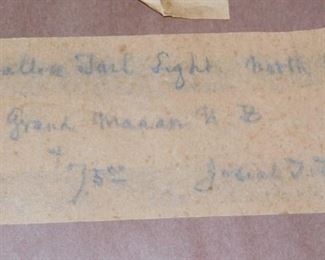 Tail Light North
Grand Manan N B
$75.00 Josiah T.